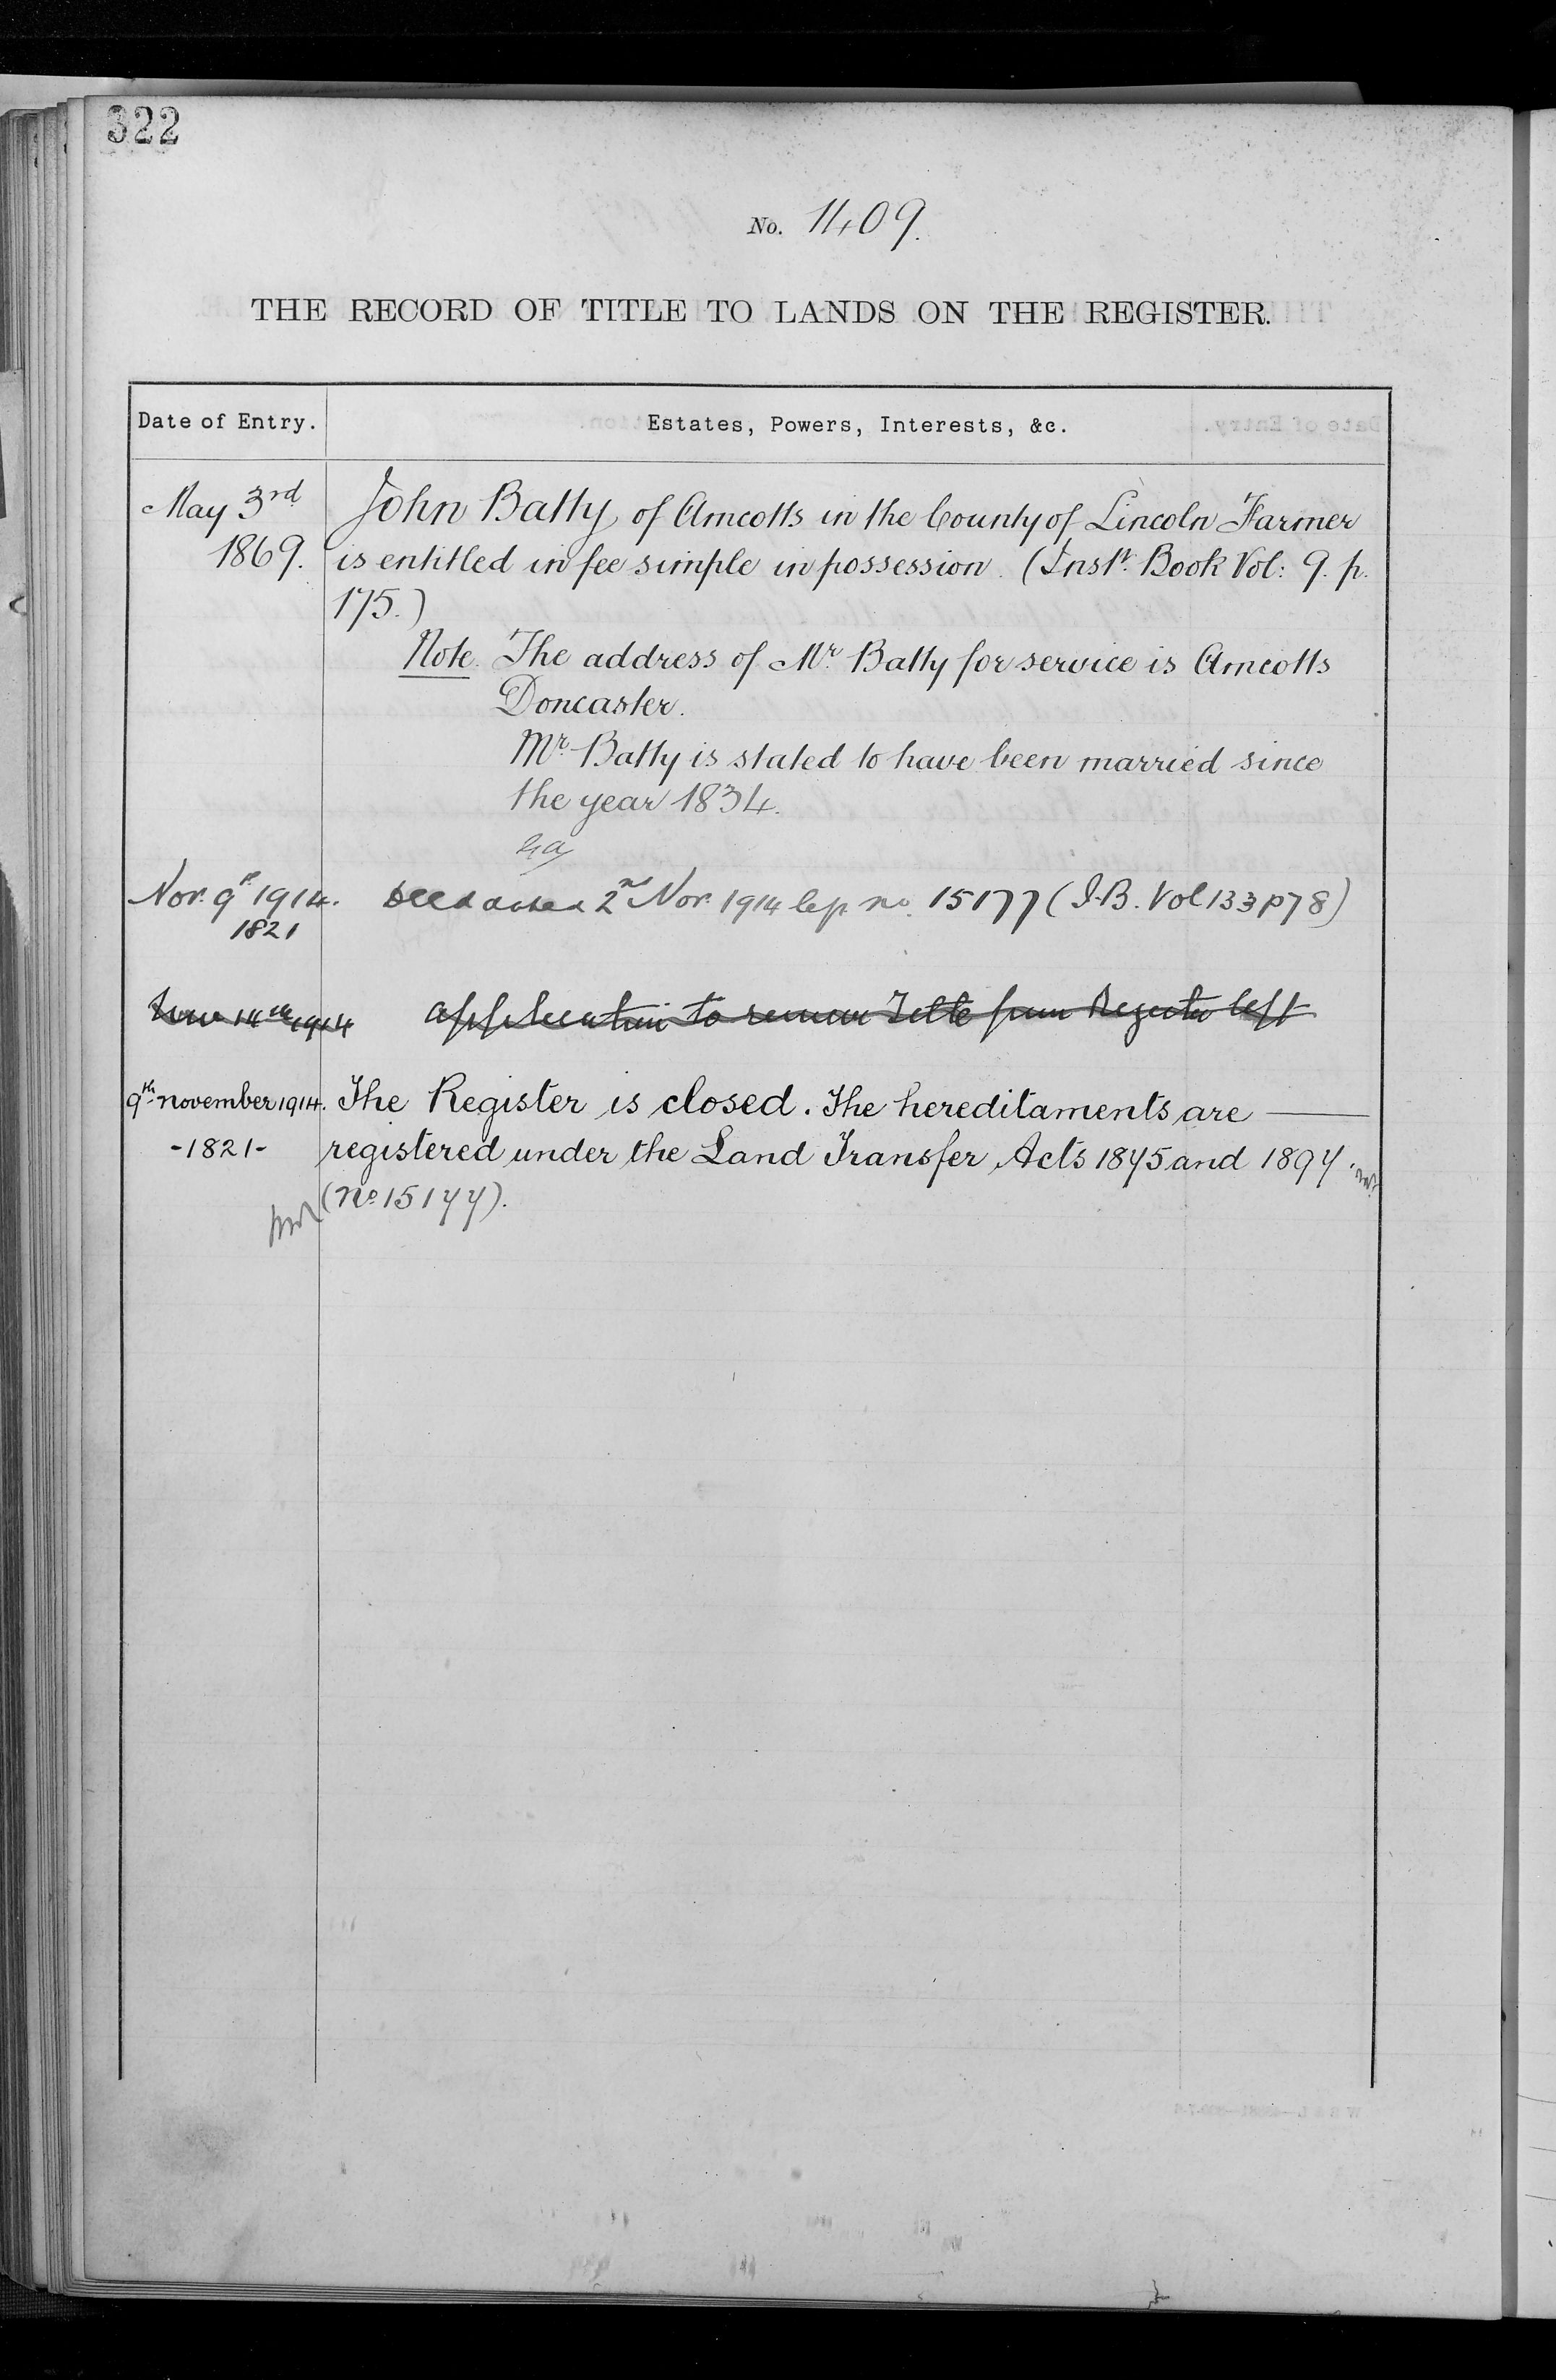 322
No. 1409.
THE RECORD OF TITLE TO LANDS ON THE REGISTER.
Date of Entry.
Estates, Powers, Interests, &c.
May 3rd
1869.
John Batty of Amcotts in the County of Lincoln Farmer
is entitled in fee simple in possession. (Inst. Book Vol: 9. p.
175.)
Note. The address of Mr. Batty for service is Amcotts
Doncaster.
Mr. Batty is stated to have been married since
the year 1834.
Nov. 9th 1914.
1821
Deed dated 2nd Nov. 1914 no. 15177 (I.B. Vol 133 p78)
14th 1914
application to remove Title from Register left
9th november 1914.
-1821-
The Register is closed. The hereditaments are
registered under the Land Transfer Acts 1875 and 1897.
(No 15177).